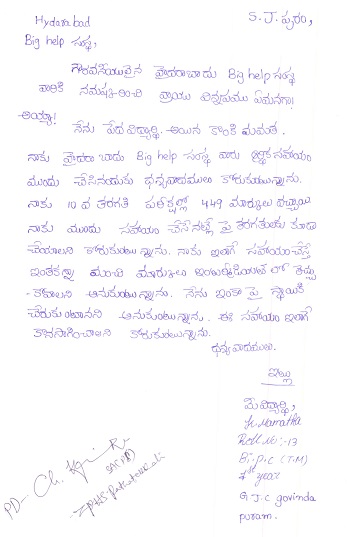 S. J. పురం,
Hyderabad
Big help సంస్థ,
గౌరవనీయులైన హైదరాబాదు Big help సంస్థ
వారికి నమస్కరించి వ్రాయు విన్నపము ఏమనగా!
అయ్యా!
నేను పేద విద్యార్థి. అయిన కొంకి మమత.
నాకు హైదరాబాదు Big help సంస్థ వారు ఆర్థిక సహాయం
ముందు చేసినందుకు ధన్యవాదములు కోరుకుంటున్నాను.
నాకు 10వ తరగతి పరీక్షల్లో 449 మార్కులు వచ్చాయి
నాకు ముందు సహాయం చేసినట్లే పై తరగతులకు కూడా
చేయాలని కోరుకుంటున్నాను. నాకు ఇలాగే సహాయంచేస్తే
ఇంతకన్నా మంచి మార్కులు ఇంటర్మీడియెట్ లో తెచ్చు
-కోవాలని అనుకుంటున్నాను. నేను ఇంకా పై స్థాయికి
చేరుకుంటానని అనుకుంటున్నాను. ఈ సహాయం ఇలాగే
కొనసాగించాలని కోరుకుంటున్నాను.
ధన్యవాదములు.
ఇట్లు
మీ విద్యార్థి,
K. Mamatha
Roll No :-13
Bi.p.c (T.M)
1st year
G.J.C govinda
puram.
PD- Ch.